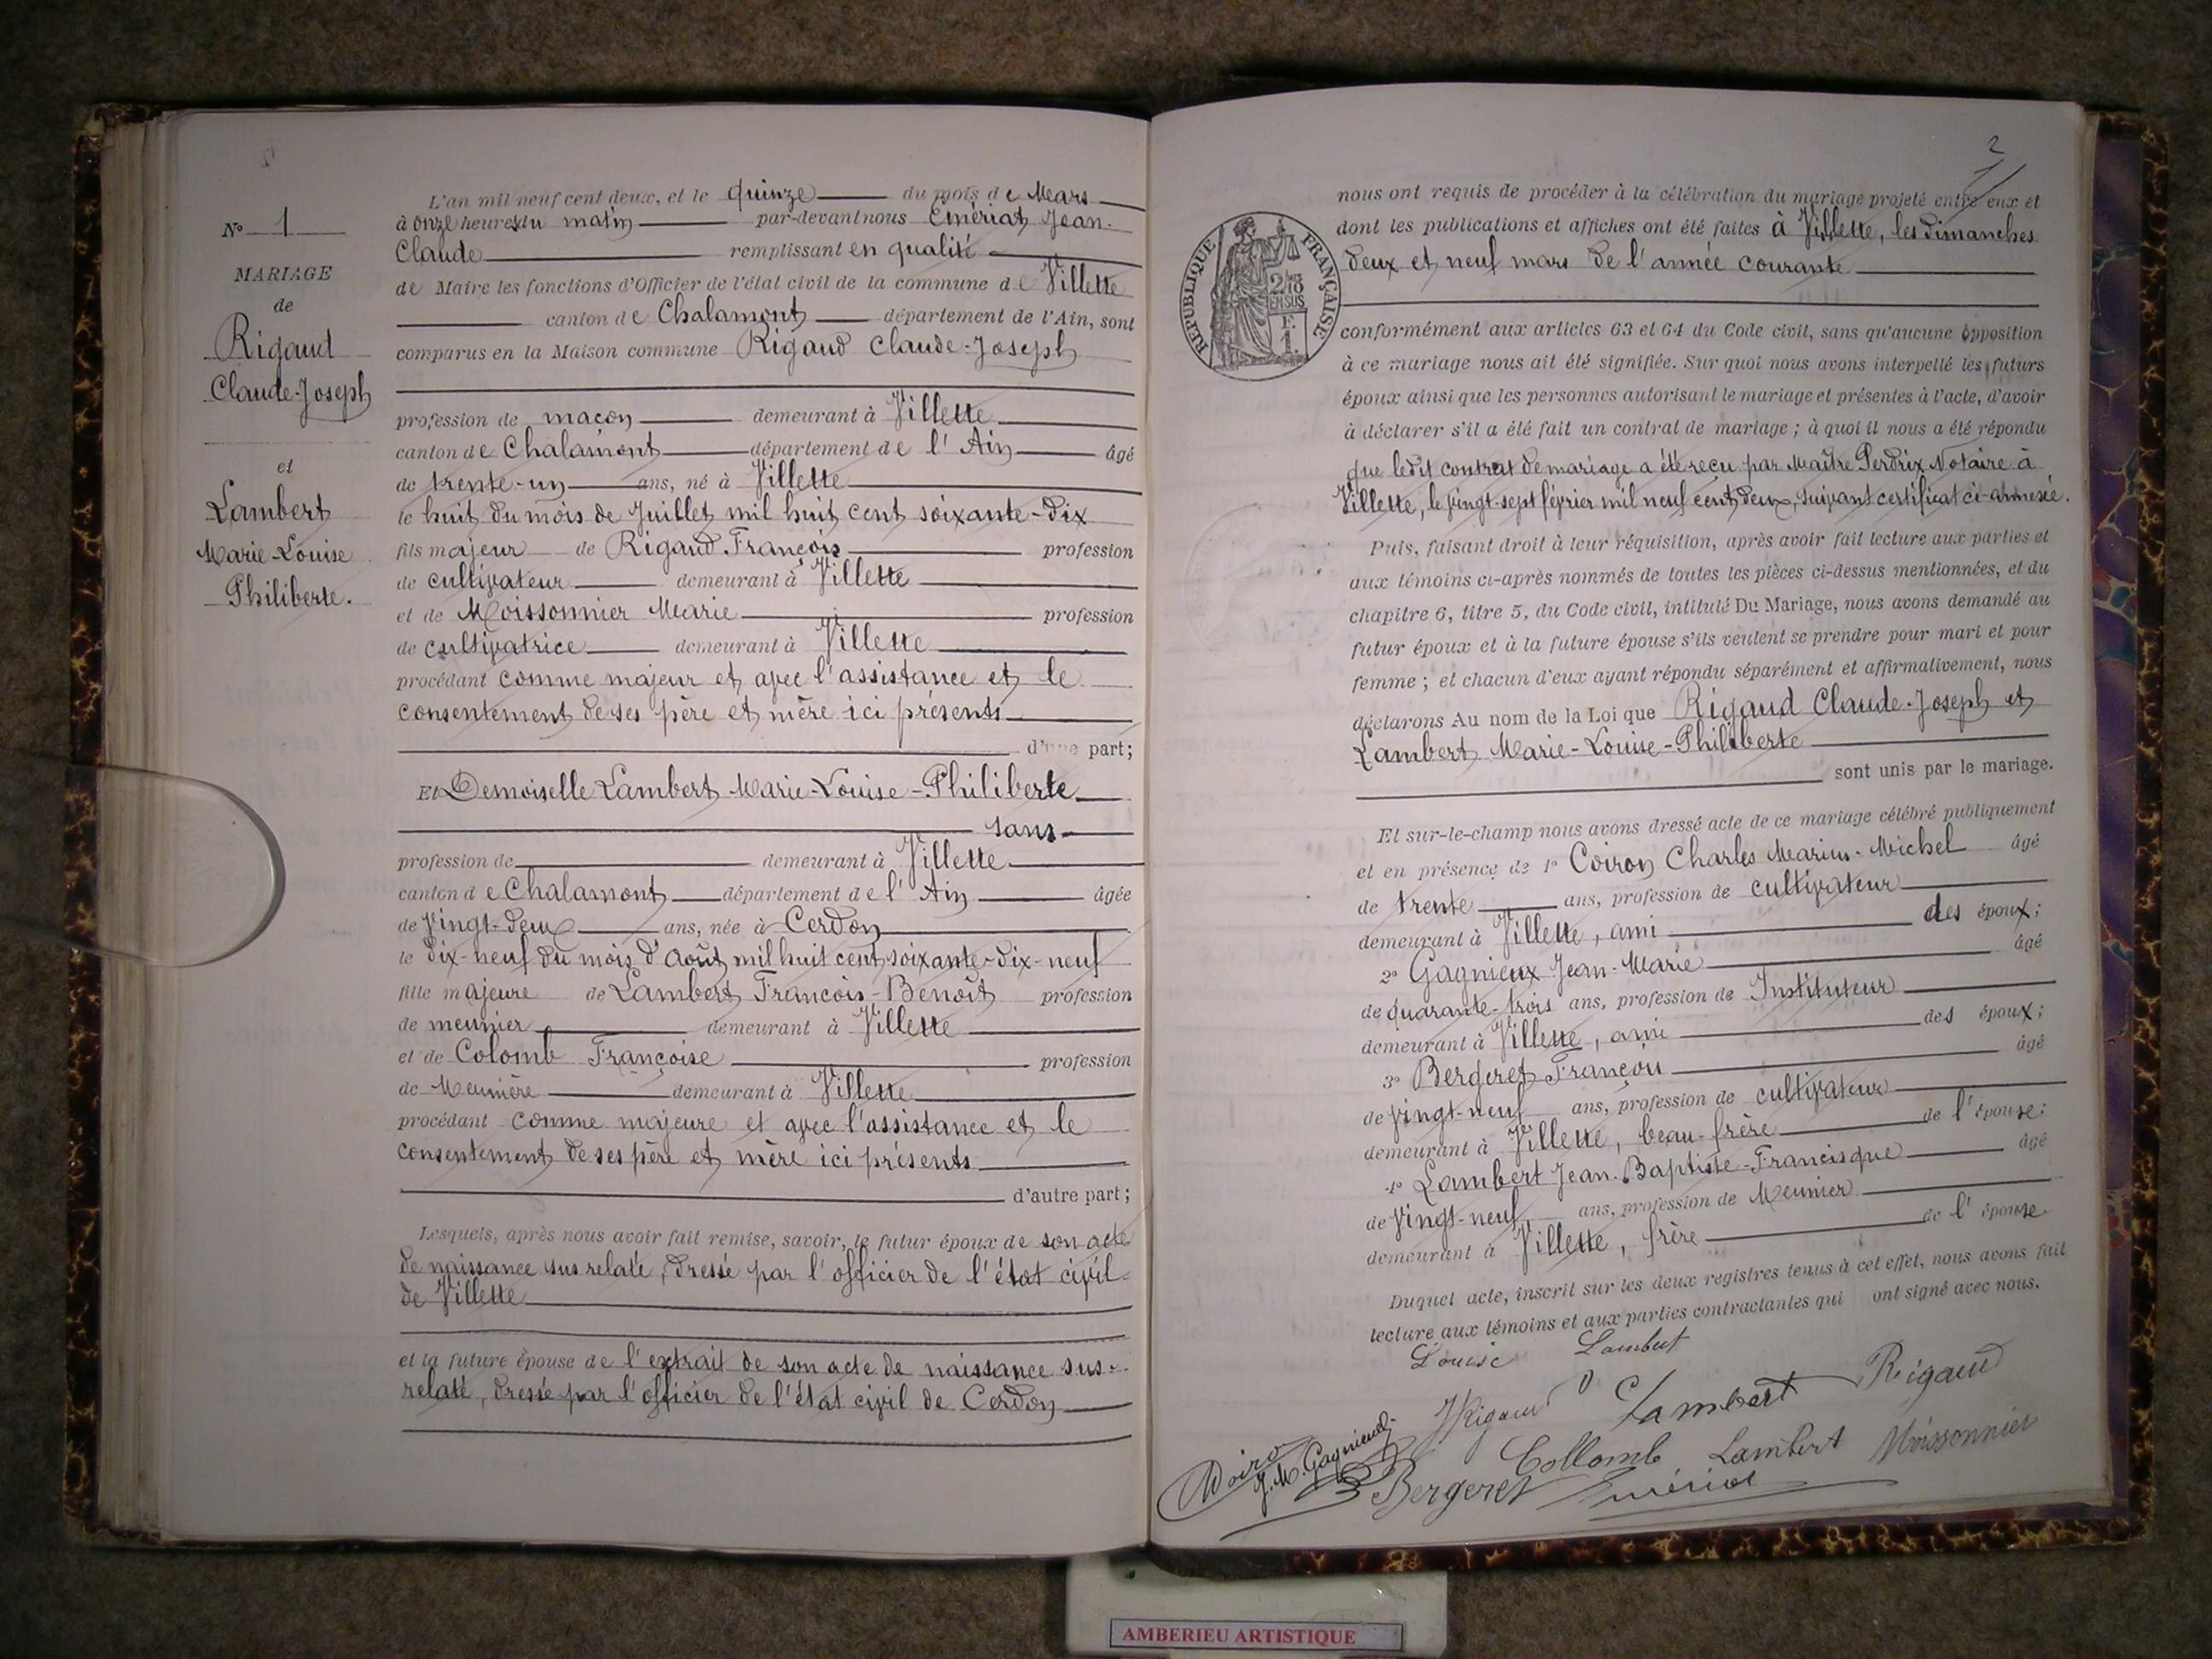 N° 1
MARIAGE
de
Rigaud
Claude-Joseph
et
Lambert
Marie-Louise
Philiberte.
L'an mil neuf cent deux, et le quinze du mois de Mars
à onze heures du matin par-devant nous Emériat Jean-
Claude remplissant en qualité
de Maire les fonctions d'Officier de l'état civil de la commune de Villette
canton de Chalamont département de l'Ain, sont
comparus en la Maison commune Rigaud Claude-Joseph
profession de maçon demeurant à Villette
canton de Chalamont département de l'Ain âgé
de trente-un ans, né à Villette
le huit du mois de Juillet mil huit cent soixante-dix
fils majeur de Rigaud François profession
de cultivateur demeurant à Villette
et de Moissonnier Marie profession
de cultivatrice demeurant à Villette
procédant comme majeur et avec l'assistance et le
consentement de ses père et mère ici présents
d'une part;
Et Demoiselle Lambert Marie-Louise-Philiberte
sans
profession de demeurant à Villette
canton de Chalamont département de l'Ain âgée
de vingt-deux ans, née à Cerdon
le dix-neuf du mois d'Août mil huit cent soixante-dix-neuf
fille majeure de Lambert François-Benoît profession
de meunier demeurant à Villette
et de Colomb Françoise profession
de Meunière demeurant à Villette
procédant comme majeure et avec l'assistance et le
consentement de ses père et mère ici présents
d'autre part;
Lesquels, après nous avoir fait remise, savoir, le futur époux de son acte
de naissance sus relaté, dressé par l'officier de l'état civil
de Villette
et la future épouse de l'extrait de son acte de naissance sus-
relaté, dressé par l'officier de l'état civil de Cerdon
2
RÉPUBLIQUE FRANÇAISE
2/10
EN SUS
F.
1.
nous ont requis de procéder à la célébration du mariage projeté entre eux et
dont les publications et affiches ont été faites à Villette, les dimanches
deux et neuf mars de l'année courante
conformément aux articles 63 et 64 du Code civil, sans qu'aucune opposition
à ce mariage nous ait été signifiée. Sur quoi nous avons interpellé les futurs
époux ainsi que les personnes autorisant le mariage et présentes à l'acte, d'avoir
à déclarer s'il a été fait un contrat de mariage; à quoi il nous a été répondu
que ledit contrat de mariage a été reçu par Maître Perdrix Notaire à
Villette, le vingt-sept février mil neuf cent deux, suivant certificat ci-annexé.
Puis, faisant droit à leur réquisition, après avoir fait lecture aux parties et
aux témoins ci-après nommés de toutes les pièces ci-dessus mentionnées, et du
chapitre 6, titre 5, du Code civil, intitulé Du Mariage, nous avons demandé au
futur époux et à la future épouse s'ils veulent se prendre pour mari et pour
femme; et chacun d'eux ayant répondu séparément et affirmativement, nous
déclarons Au nom de la Loi que Rigaud Claude-Joseph et
Lambert Marie-Louise-Philiberte
sont unis par le mariage.
Et sur-le-champ nous avons dressé acte de ce mariage célébré publiquement
et en présence de 1° Coiron Charles Marius-Michel âgé
de trente ans, profession de cultivateur
demeurant à Villette, ami des époux;
2° Gagnieux Jean-Marie âgé
de quarante-trois ans, profession de Instituteur
demeurant à Villette, ami des époux;
3° Bergeret François âgé
de vingt-neuf ans, profession de cultivateur
demeurant à Villette, beau-frère de l'épouse;
4° Lambert Jean-Baptiste-Francisque âgé
de vingt-neuf ans, profession de Meunier
demeurant à Villette, frère de l'épouse
Duquel acte, inscrit sur les deux registres tenus à cet effet, nous avons fait
lecture aux témoins et aux parties contractantes qui ont signé avec nous.
Louise Lambert
Rigaud Lambert Rigaud
J.M. Gagnieux Collomb Lambert Moissonnier
Bergeret Emériat
AMBERIEU ARTISTIQUE